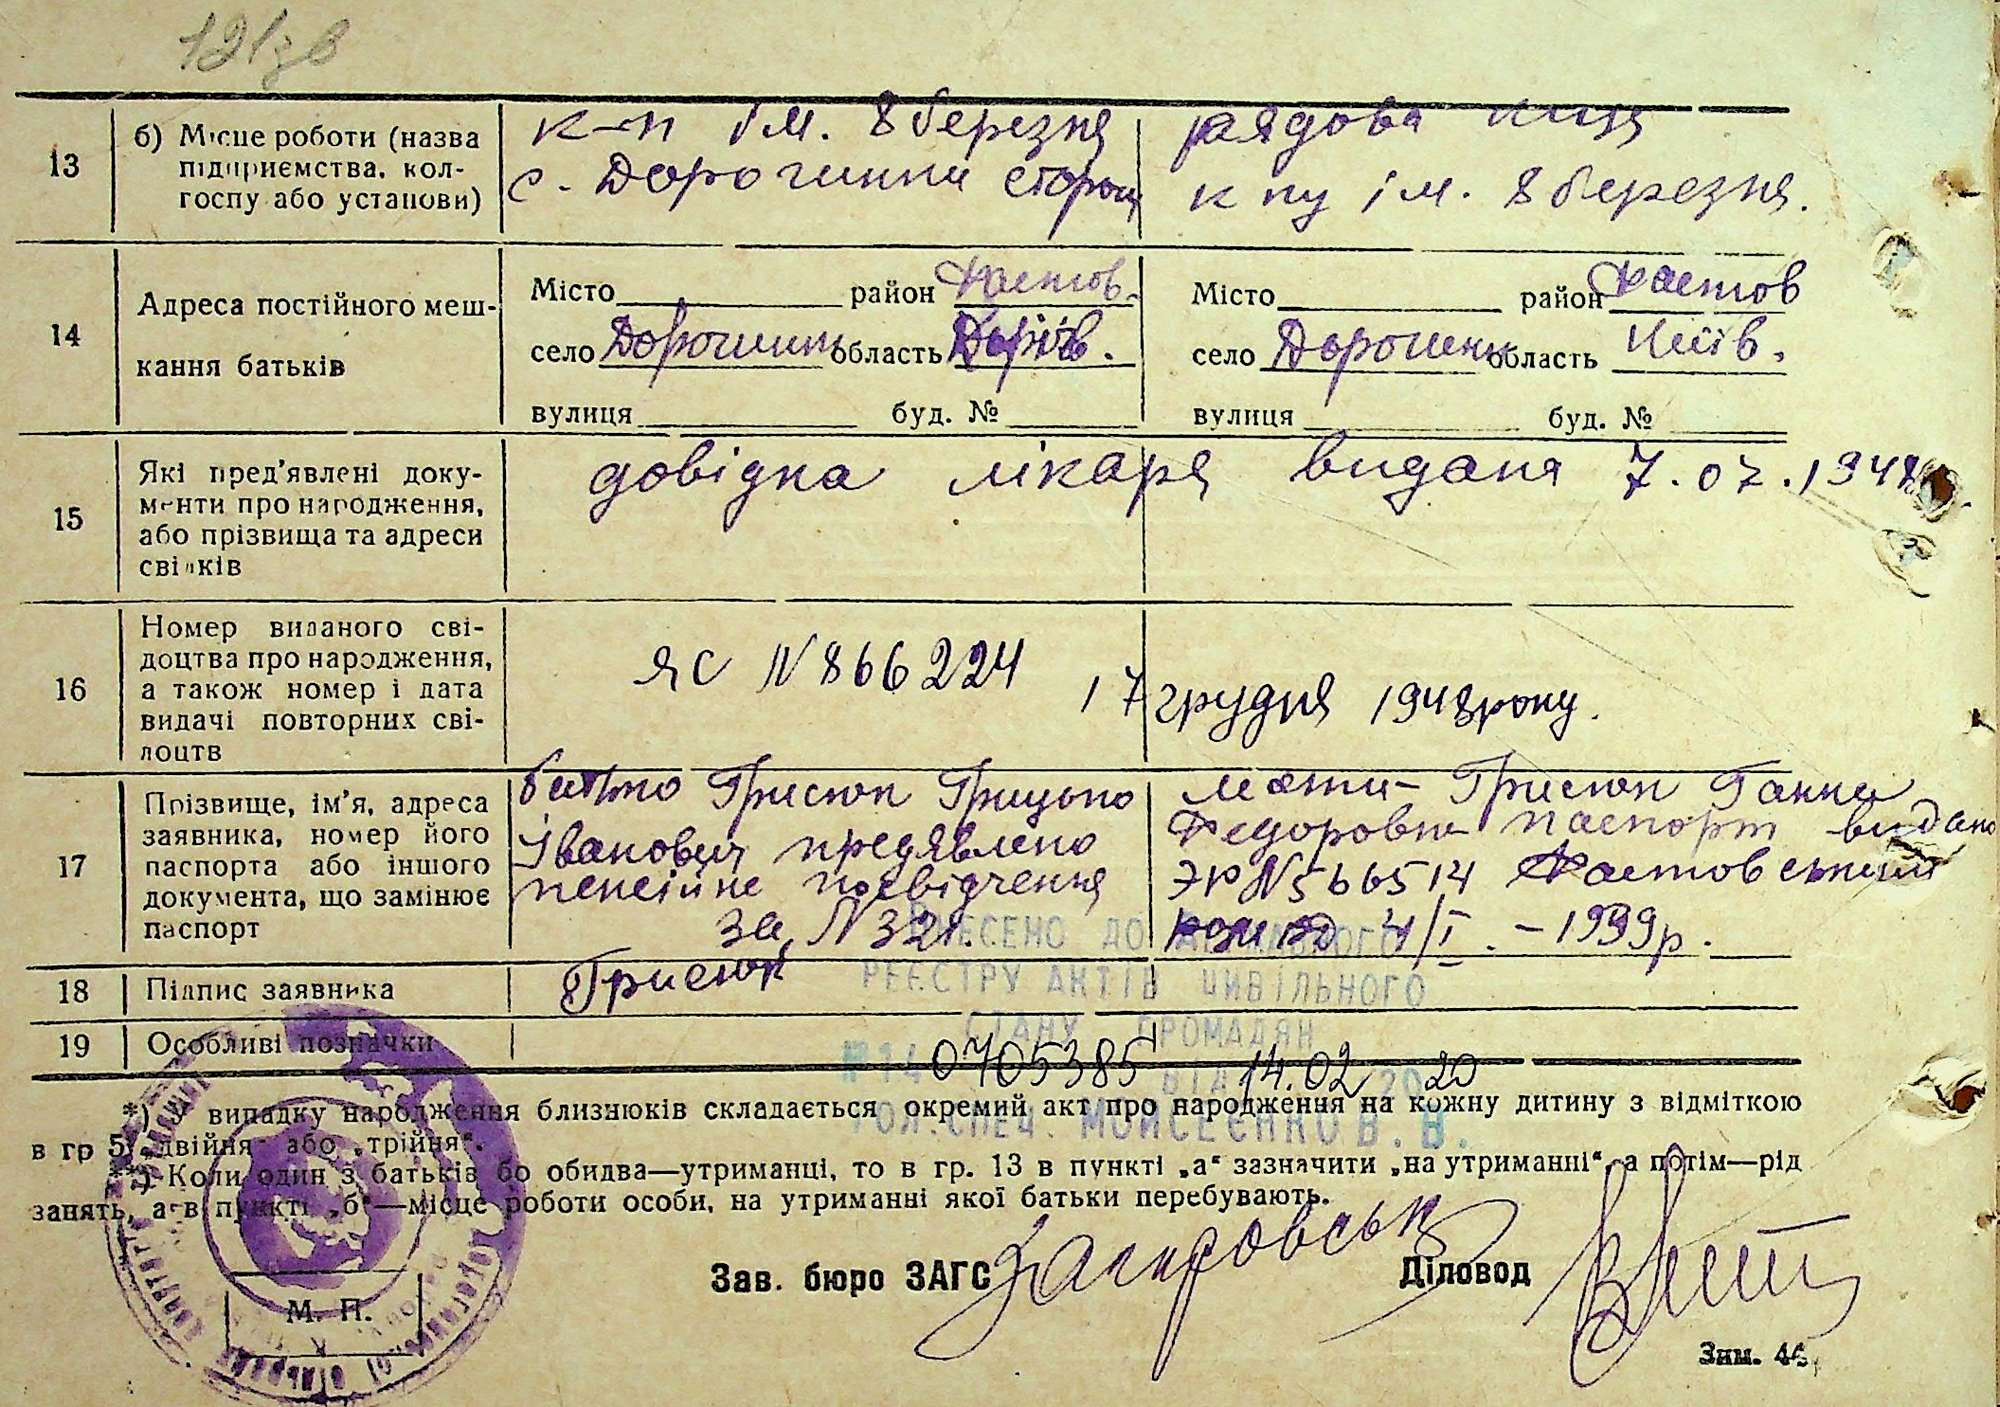 121зв
13
б) Місце роботи (назва
підприємства, кол-
госпу або установи)
к-п ім. 8 березня
с. Дорогинка сторож
рядова
к пу ім. 8 березня.
14
Адреса постійного меш-
кання батьків
Місто район Фастов.
село Дорогинка область
вулиця буд. №
Місто район Фастов
село Дорогинка область Київ.
вулиця буд. №
15
Які пред'явлені доку-
менти про народження,
або прізвища та адреси
свідків
довідка лікаря видана 7.07.1948
16
Номер виданого сві-
доцтва про народження,
а також номер і дата
видачі повторних сві-
доцтв
ЯС N 866224
17 грудня 1948 року.
17
Прізвище, ім'я, адреса
заявника, номер його
паспорта або іншого
документа, що замінює
паспорт
батько Грисюк Грицько
Іванович предявлено
пенсійне посвідчення
за N 321.
мати - Грисюк Ганна
Федоровна паспорт видано
ЭР N 566514 Фастовським
4/I. - 1939р.
18
Підпис заявника
Грисюк
19
Особливі позначки
ВНЕСЕНО ДО ДЕРЖАВНОГО
РЕЄСТРУ АКТІВ ЦИВІЛЬНОГО
СТАНУ ГРОМАДЯН
№ 14 0705385 ВІД 14.02 2020
ГОЛ. СПЕЦ. МОЙСЕЄНКО В. В.
*) У випадку народження близнюків складається окремий акт про народження на кожну дитину з відміткою
в гр 5 „двійня“ або „трійня“.
**) Коли один з батьків бо обидва—утриманці, то в гр. 13 в пункті „а“ зазначити „на утриманні“, а потім—рід
занять, а в пункті „б“—місце роботи особи, на утриманні якої батьки перебувають.
Зав. бюро ЗАГС
Діловод
М. П.
Зам. 46